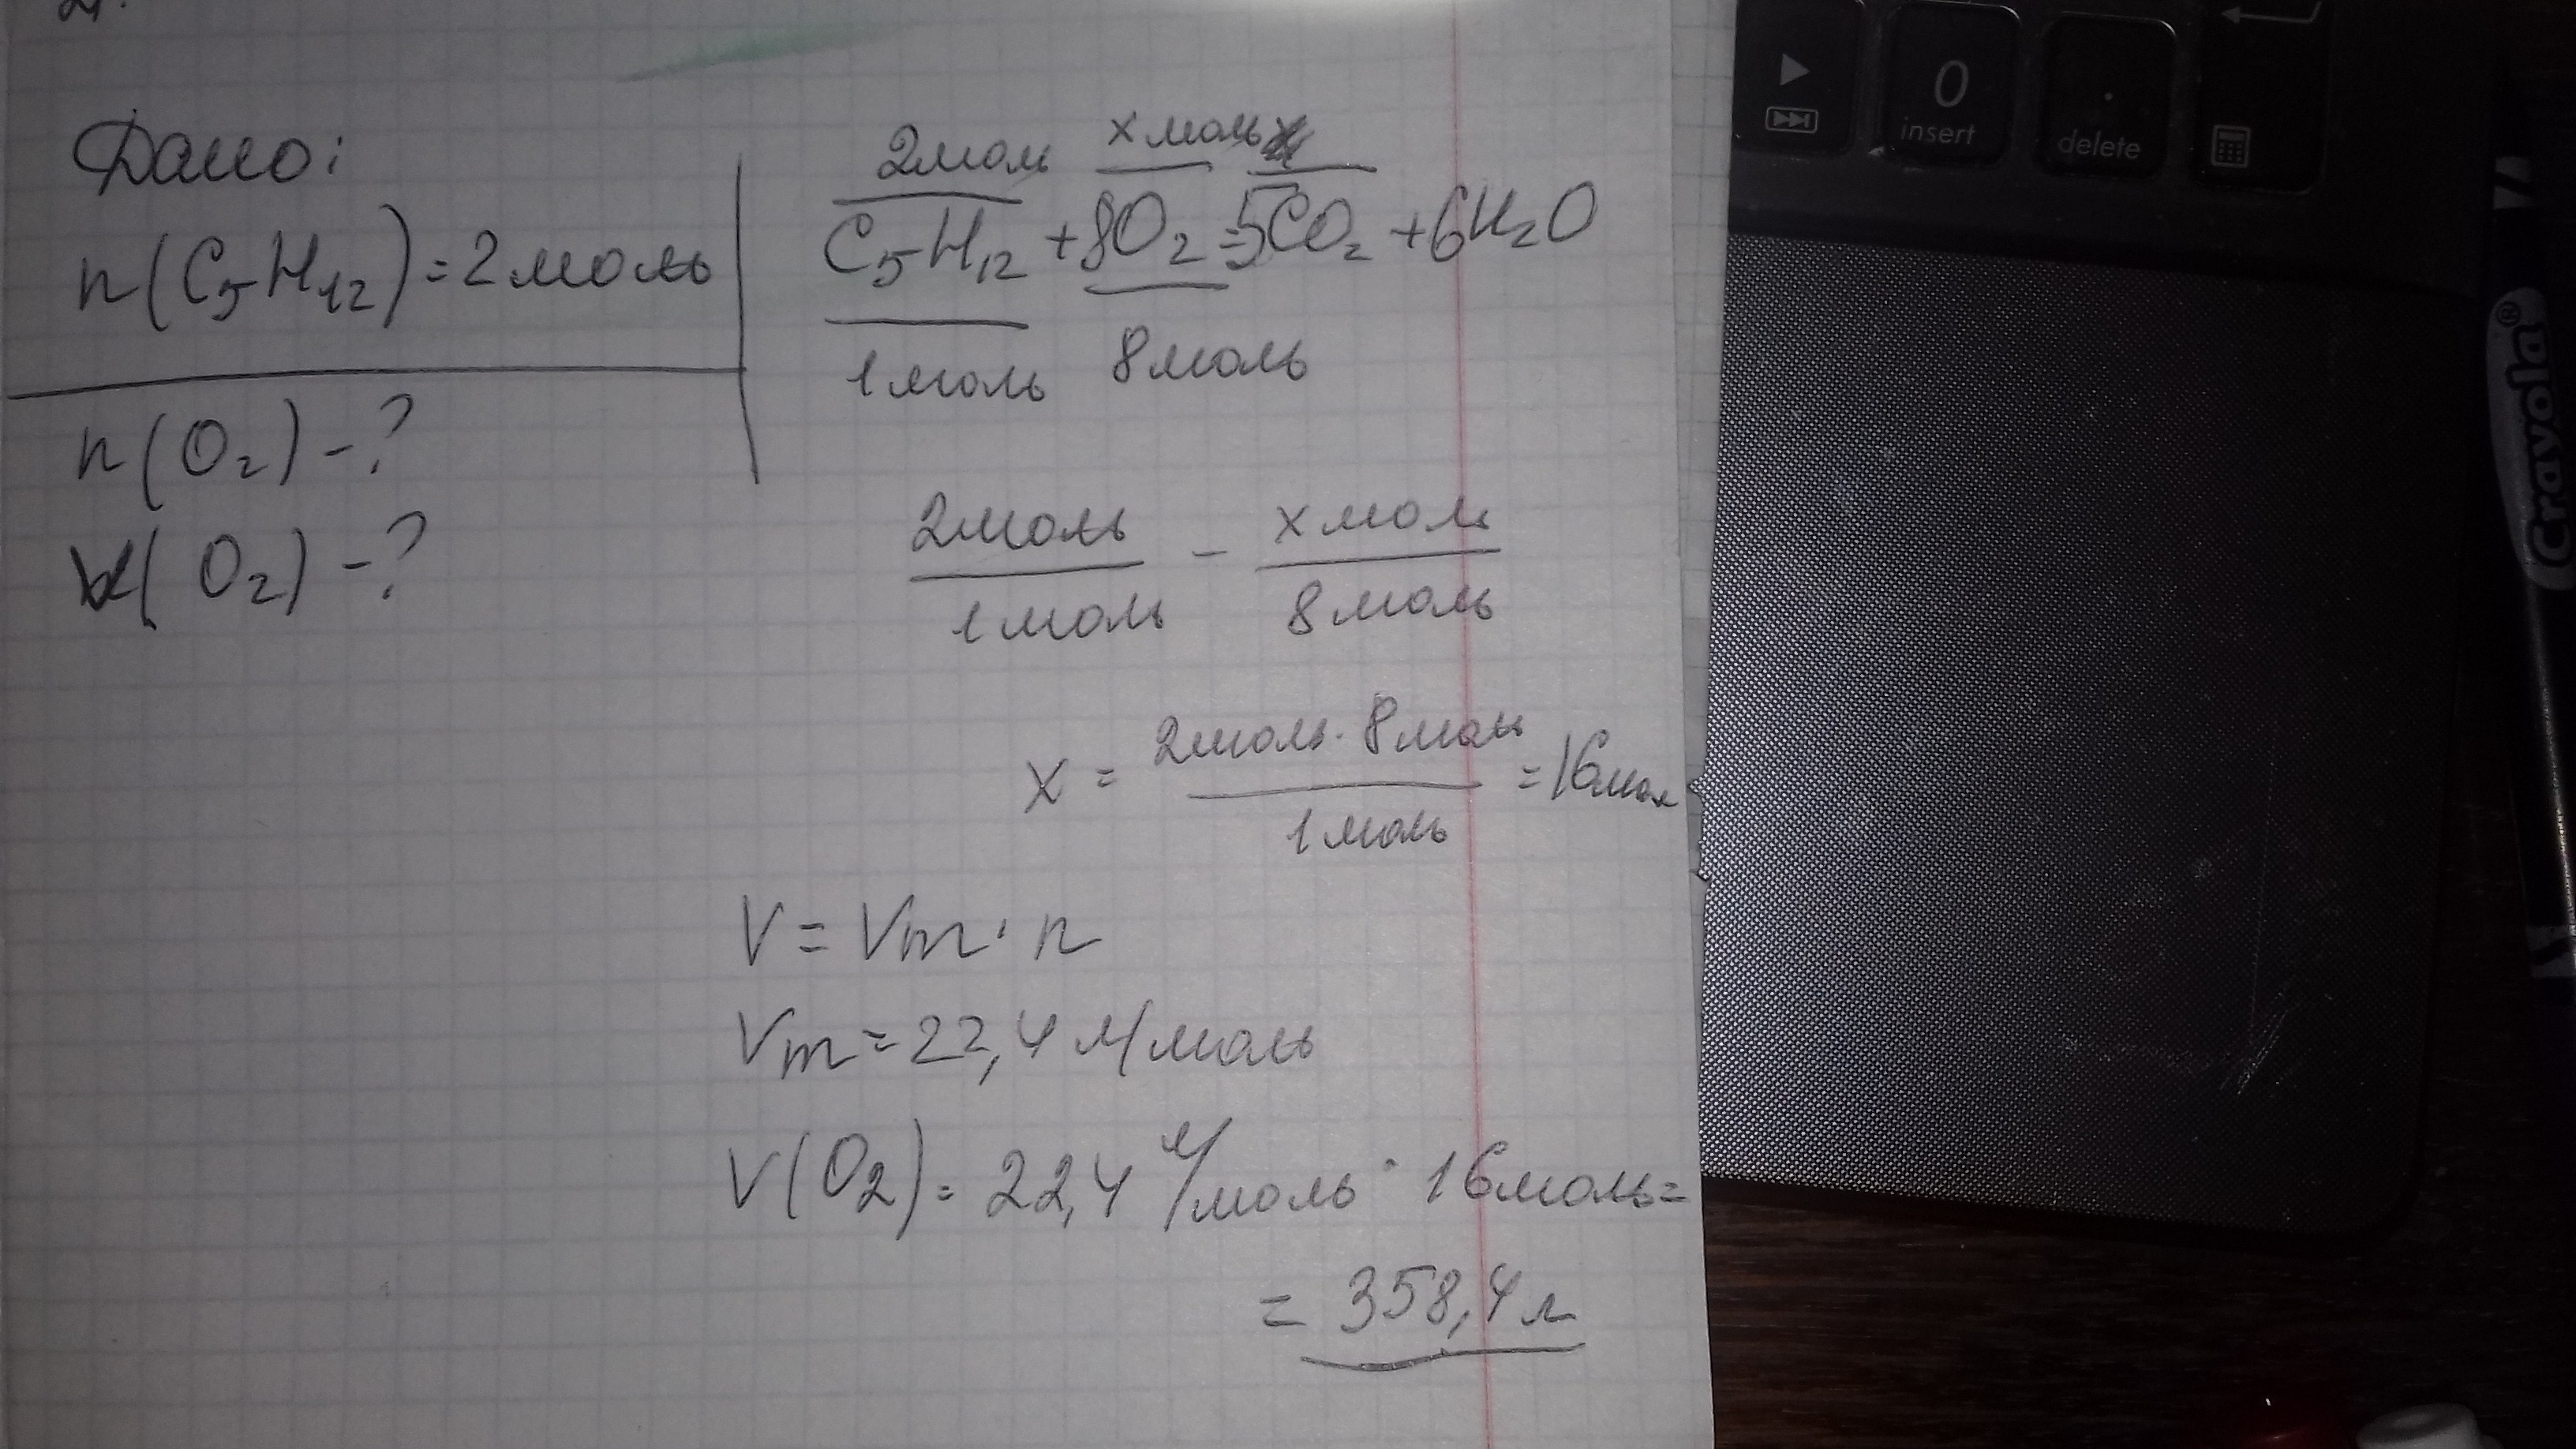 Дано:
n(C₅H₁₂)=2моль
n(O₂)-?
V(O₂)-?
2моль хмоль
C₅H₁₂+8O₂=5CO₂+6H₂O
1моль 8моль
2моль - хмоль
1моль 8моль
х = 2моль·8моль = 16мол
1моль
V=Vm·n
Vm=22,4л/моль
V(O₂)=22,4л/моль·16моль=
=358,4л
0
insert
.
delete
Crayola®